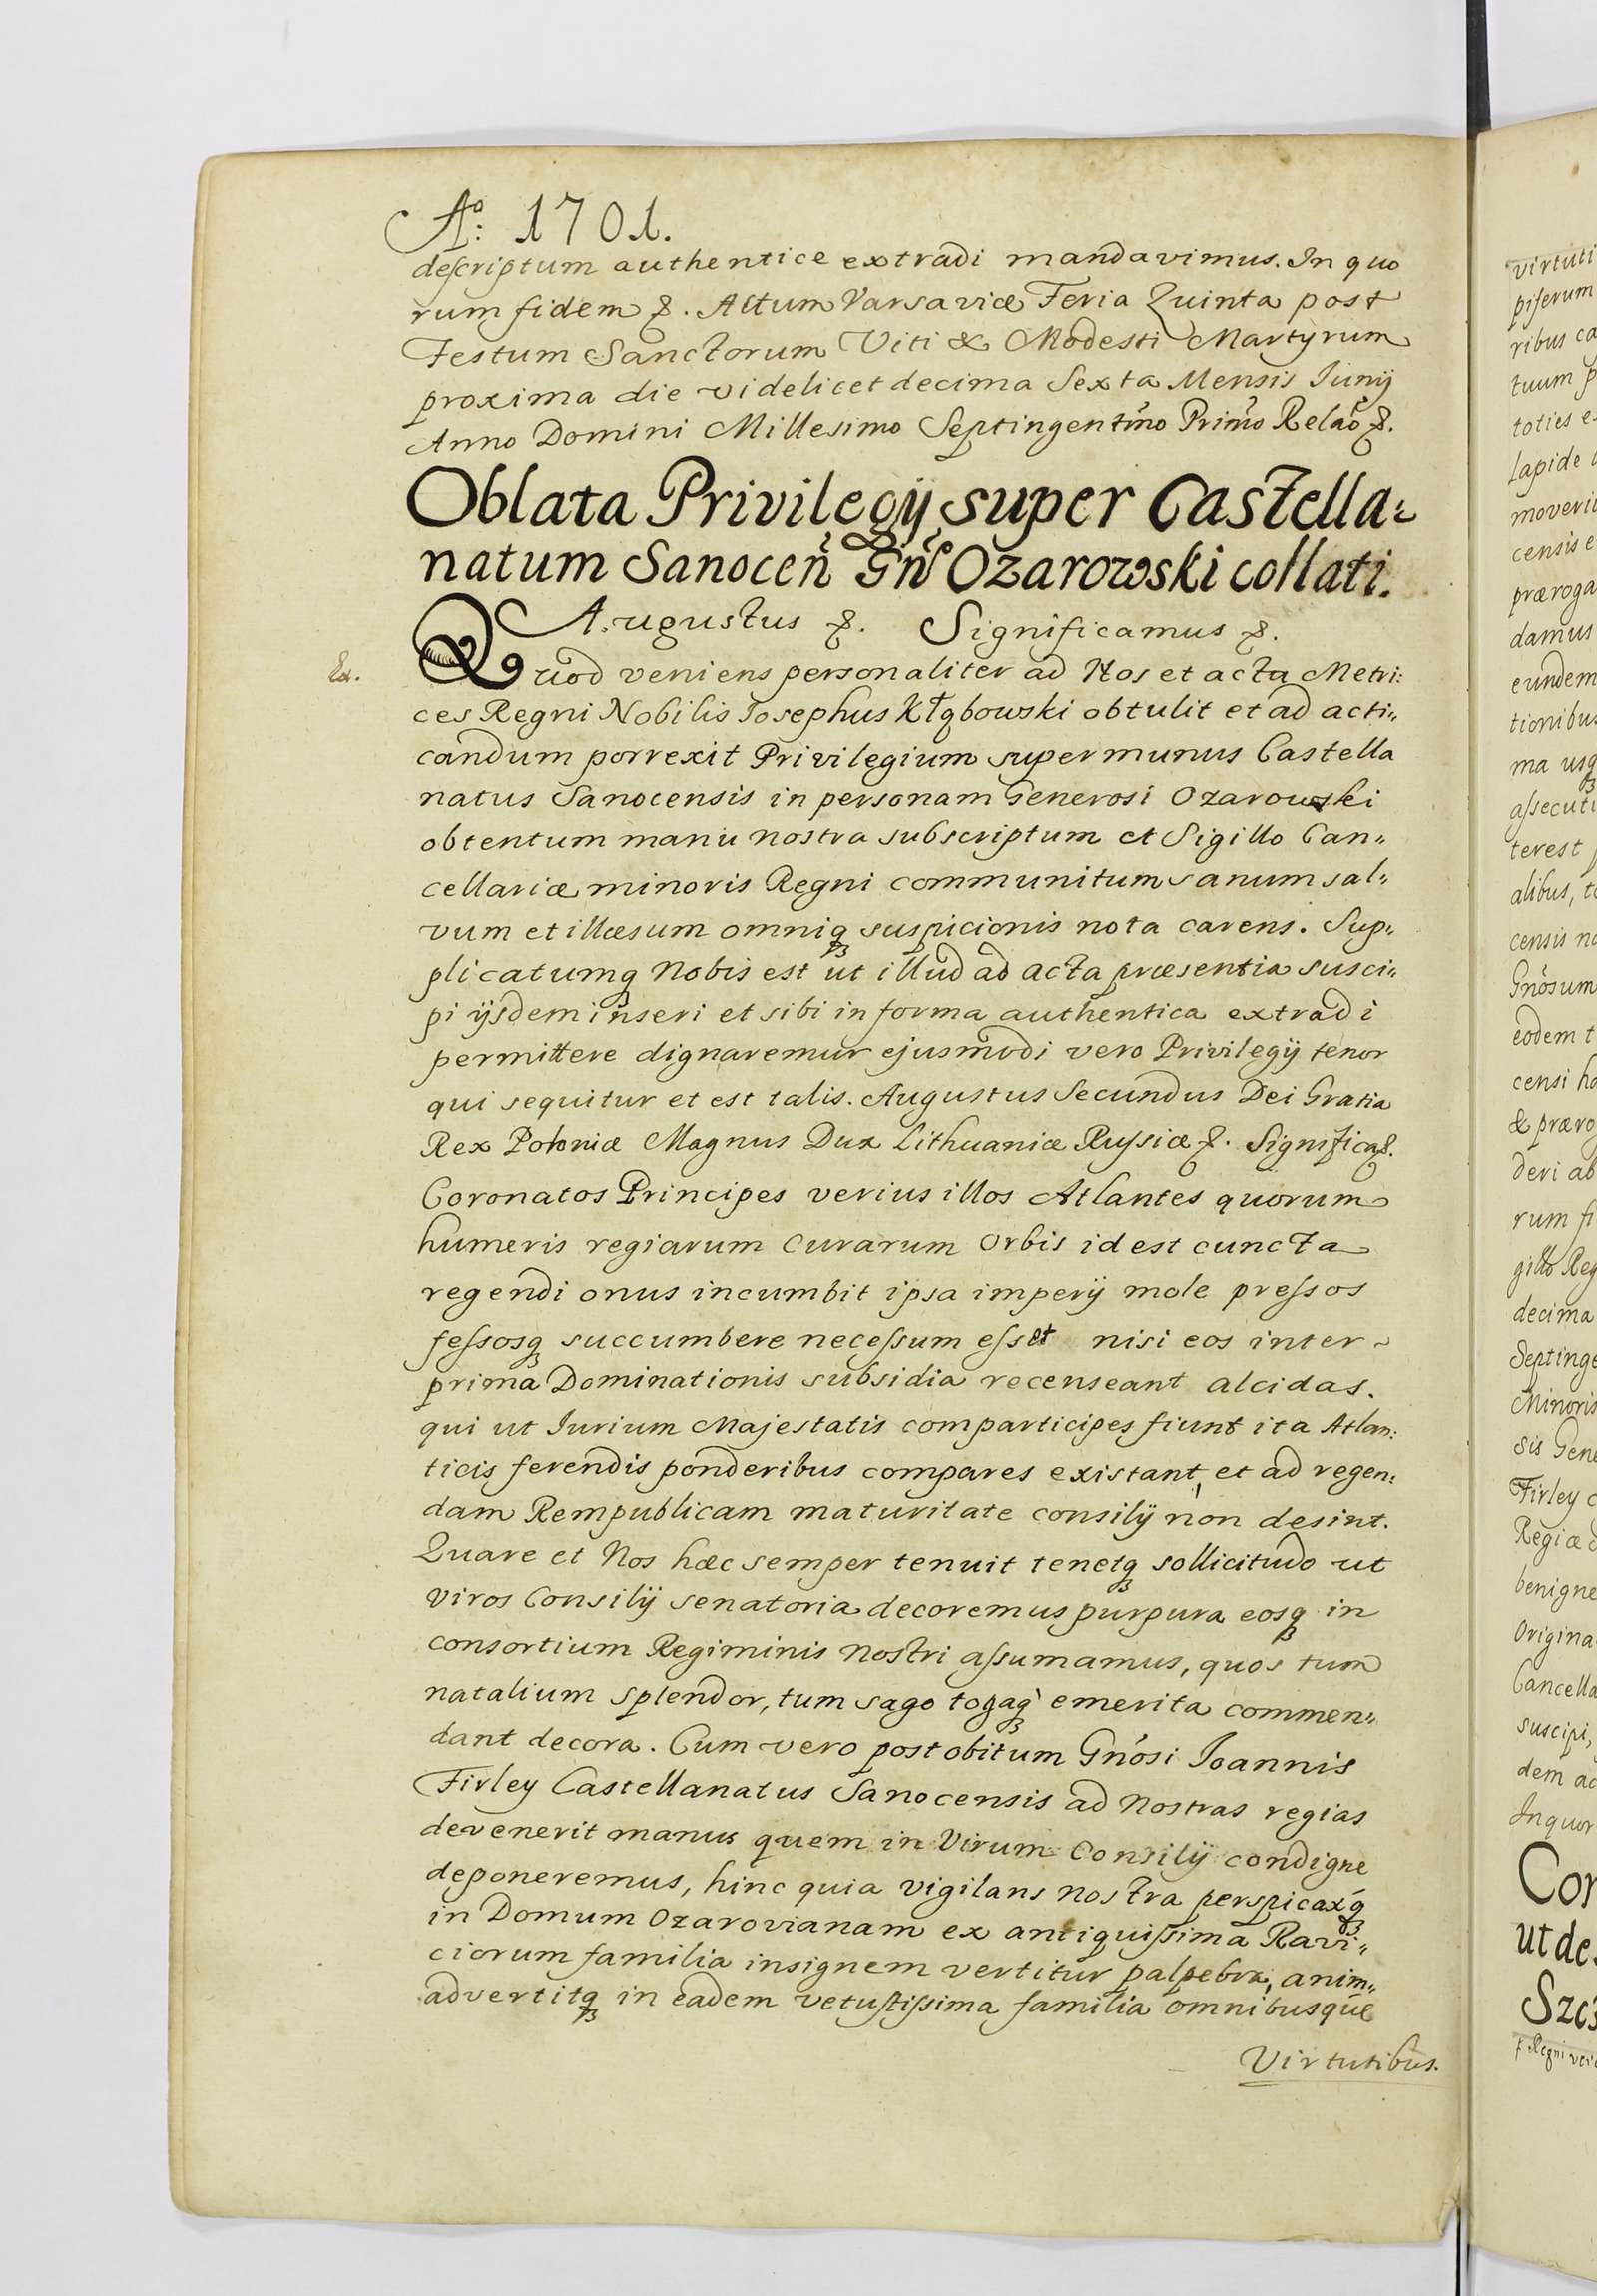 Aº: 1701.
descriptum authentice extradi mandavimus. In quo
rum fidem &. Actum Varsaviæ Feria Quinta post
Festum Sanctorum Viti & Modesti Martyrum
proxima die videlicet decima Sexta Mensis Iunij
Anno Domini Millesimo Septingentmo Primo Relao &.
Oblata Privilegij super Castella:
natum Sanocen Gn̄ Ozarowski collati.
Augustus &. Significamus &.
Ex.
Quod veniens personaliter ad Nos et acta Metri:
ces Regni Nobilis Iosephus Kłąbowski obtulit et ad acti„
candum porrexit Privilegium super munus Castella
natus Sanocensis in personam Generosi Ozarowski
obtentum manu nostra subscriptum et Sigillo Can„
cellariæ minoris Regni communitum sanum sal„
vum et illæsum omniq3 suspicionis nota carens. Sup„
plicatumq Nobis est ut illud ad acta præsentia susci„
pi ijsdem inseri et sibi in forma authentica extradi
permittere dignaremur ejusmodi vero Privilegij tenor
qui sequitur et est talis. Augustus Secundus Dei Gratia
Rex Poloniæ Magnus Dux Lithuaniæ Russiæ &. Significa&.
Coronatos Principes verius illos Atlantes quorum
humeris regiarum curarum Orbis id est cuncta
regendi onus incumbit ipsa imperij mole pressos
fessosq3 succumbere necessum esset nisi eos inter
prima Dominationis subsidia recenseant alcidas.
qui ut Iurium Majestatis comparticipes fiunt ita Atlan:
ticis ferendis ponderibus compares existant, et ad regen:
dam Rempublicam maturitate consilij non desint.
Quare et Nos hæc semper tenuit tenetq3 sollicitudo ut
viros Consilij senatoria decoremus purpura eosq3 in
consortium Regiminis Nostri assumamus, quos tum
natalium splendor, tum sago togaq3 emerita commen„
dant decora. Cum vero post obitum Gnosi Ioannis
Firley Castellanatus Sanocensis ad Nostras regias
devenerit manus quem in Virum Consilij condigne
deponeremus, hinc quia vigilans nostra perspicaxq3
in Domum Ozarovianam ex antiquissima Ravi„
ciorum familia insignem vertitur palpebra, anim„
advertitq3 in eadem vetustissima familia omnibusque
Virtutibus.
virtuti
piserum
ribus ca
tuum p
toties e
lapide
moveri
censis e
præroga
damus
eundem
tionibus
ma usq3
assecuti
terest
alibus, t
censis n
Gnosum
eodem t
censi h
& præro
deri ab
rum fi
gillo Reg
decima
Septinge
Minoris
sis Gene
Firley
Regiæ
benigne
Origina
Cancella
suscipi,
dem ac
Inquor
Cor
ut de
Szcz
Regni